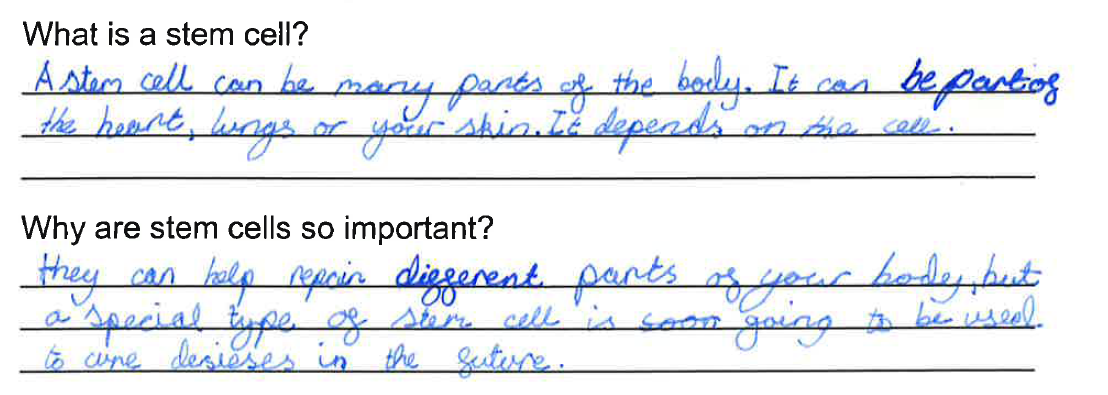 What is a stem cell?
A stem cell can be many parts of the body. It can be part of
the heart, lungs or your skin. It depends on the cell.
Why are stem cells so important?
they can help repair different parts of your body, but
a special type of stem cell is soon going to be used
to cure desieses in the future.